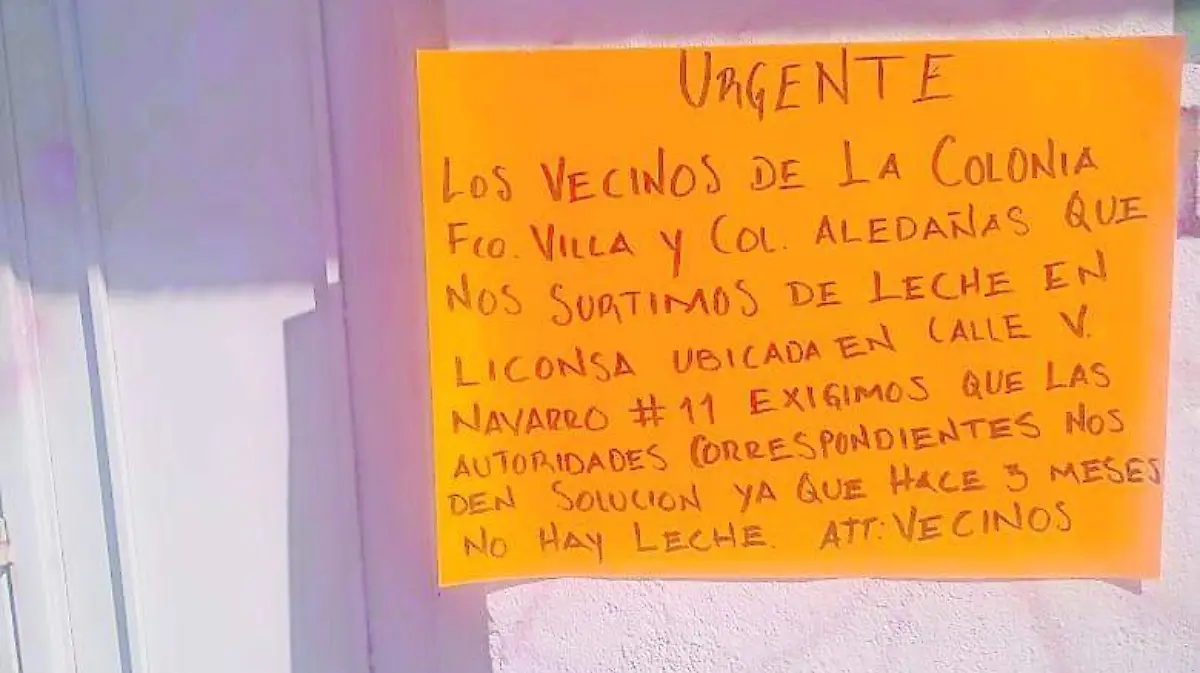 URGENTE
LOS VECINOS DE LA COLONIA
FCO. VILLA Y COL. ALEDAÑAS QUE
NOS SURTIMOS DE LECHE EN
LICONSA UBICADA EN CALLE V.
NAVARRO # 11 EXIGIMOS QUE LAS
AUTORIDADES CORRESPONDIENTES NOS
DEN SOLUCION YA QUE HACE 3 MESES
NO HAY LECHE. ATT: VECINOS